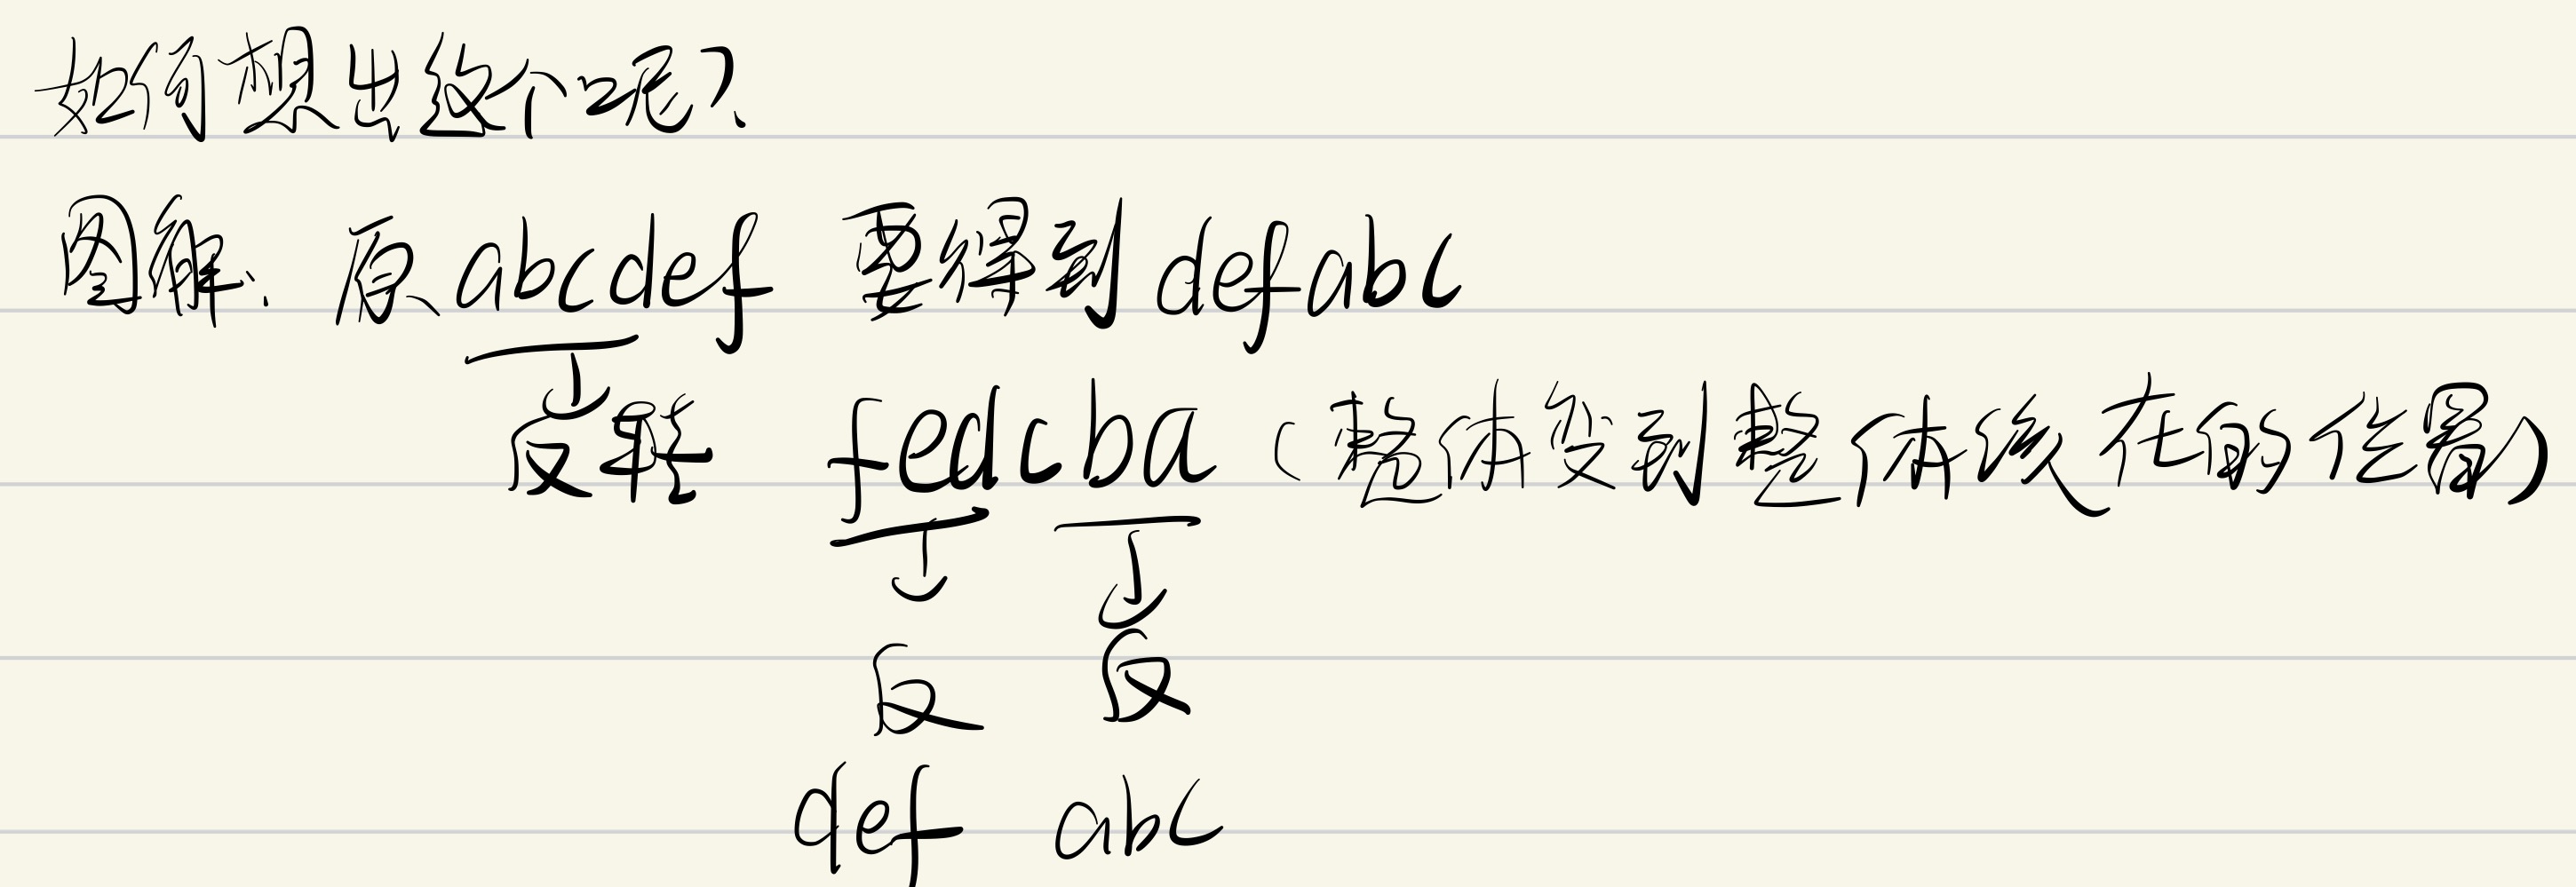 如何想出这个呢?
图解: 原 abcdef 要得到 defabc
反转 fedcba (整体变到整体该在的位置)
反 反
def abc